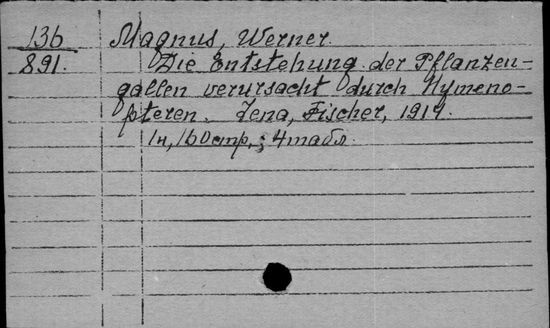 136 Magnus, Werner.
891. Die Entstehung der Pflanzen-
gallen verursacht durch Hymeno-
pteren. Jena, Fischer, 1914.
1н, 160стр.; 4табл.